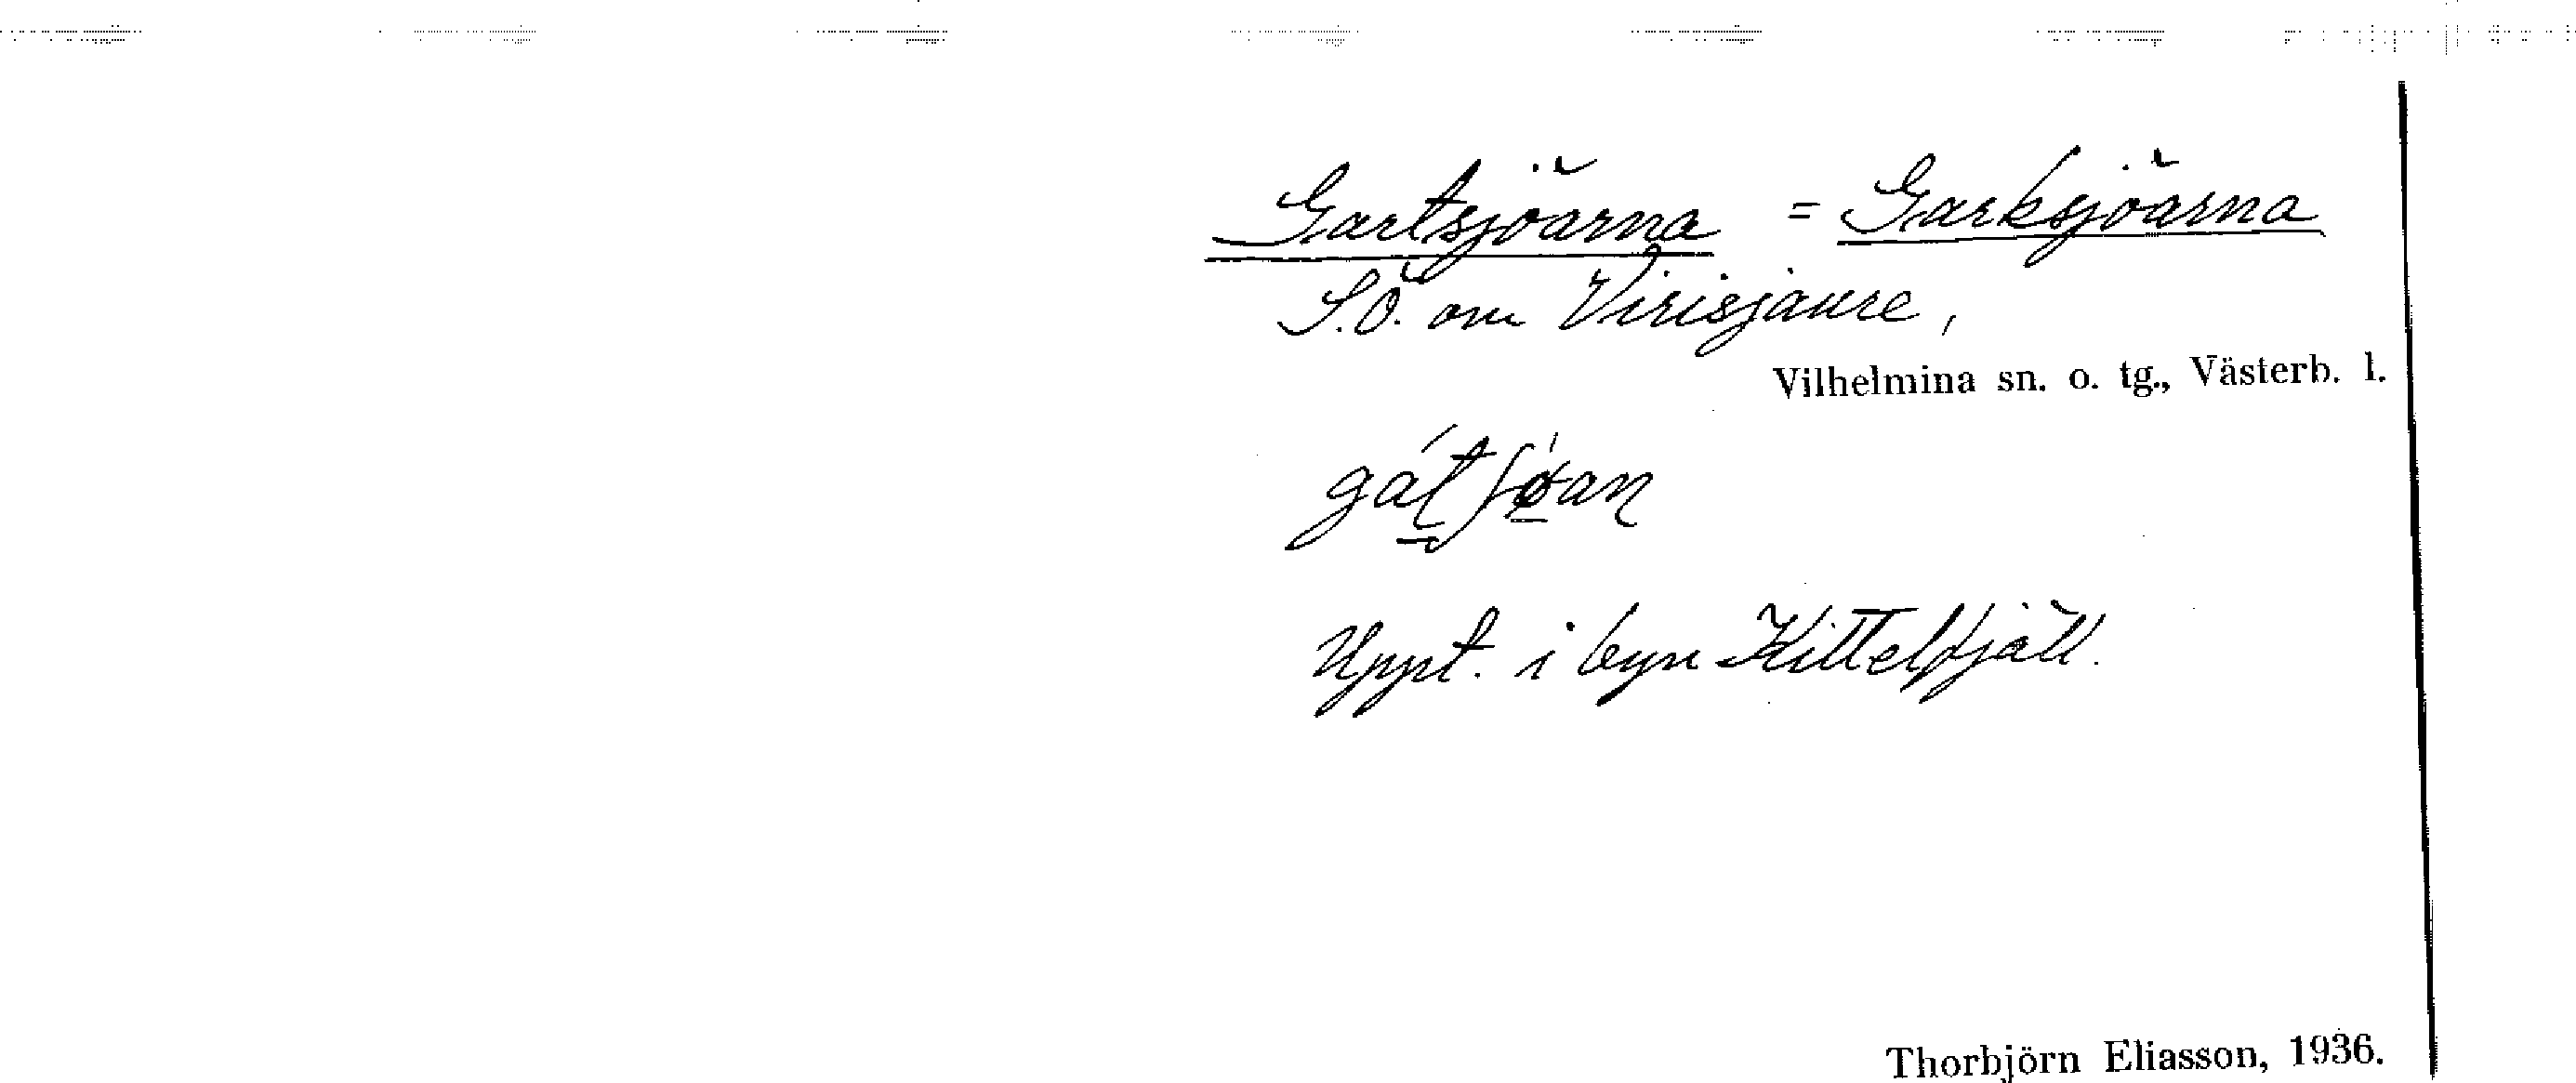 Gartsjöarna = Garksjöarna
S.Ö. om Virisjaure,
Vilhelmina sn. o. tg., Västerb. l.
gátʃø̀an
Uppt. i byn Kittelfjäll.
Thorbjörn Eliasson, 1936.